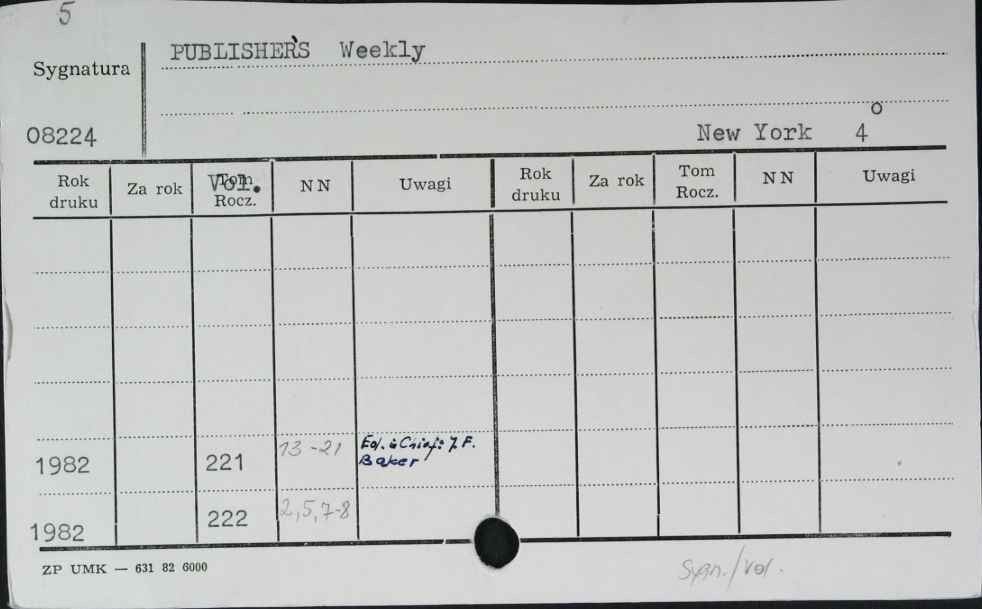 5
Sygnatura PUBLISHER'S Weekly
08224 New York 4°
Rok druku Za rok Vol. Tom Rocz. NN Uwagi Rok druku Za rok Tom Rocz. NN Uwagi
1982 221 13-21 Ed. in Chief: J.F. Baker
1982 222 2,5,7-8
ZP UMK — 631 82 6000 Sygn./vol.